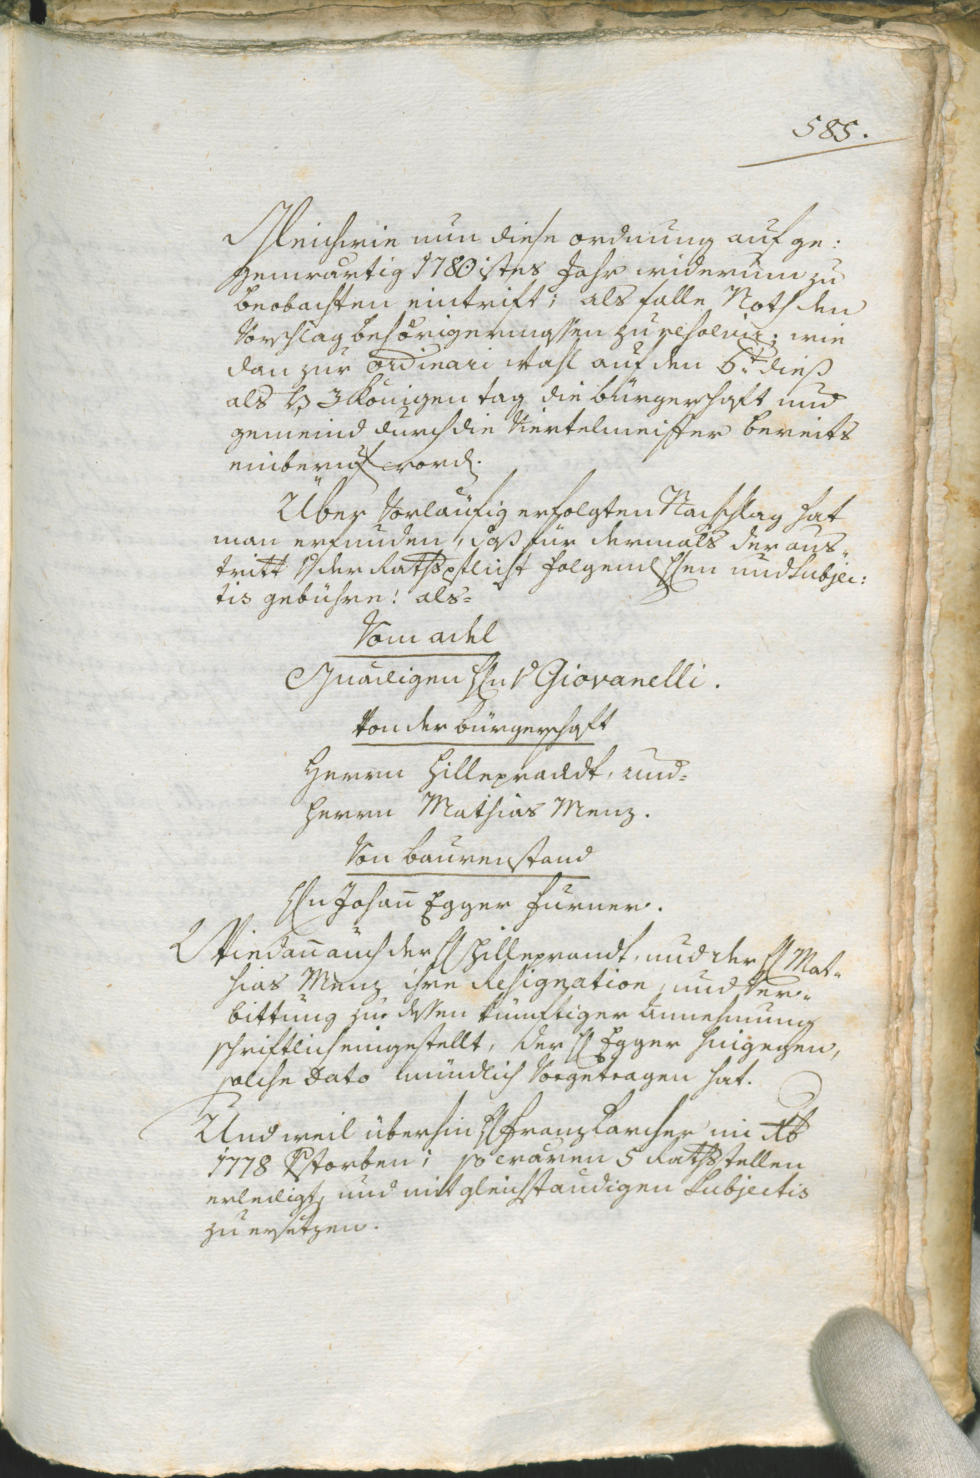 585.
Gleichwie nun diese ordnung auf ge:
genwartig 1780istes Jahr widerum zu
beobachten eintrift; als falle Noth den
Vorschlag behörigermassen zu resolvir; wie
dan zur ordinari wahl auf den 6t: dieß
als 3 Königen tag die bürgerschaft und
gemeind durch die Viertelmeister bereits
einberuf word.
Über vorläufig erfolgten Nachschlag hat
man erfunden, daß für dermals der aus„
tritt der Rathspflicht folgend Hen und Subjec:
tis gebühre! als=
Vom adel
Gnädigen Hn v Giovanelli.
Von der bürgerschaft
Herrn Hilleprandt, und=
Herrn Mathias Menz.
Von Baurenstand
Hn Johan̄ Egger Furner.
Wie dan̄ auch der H Hilleprandt, und der H Mat„
hias Menz ihre Resignation, und Ver„
bittung zu dessen künftiger Annehmung
schriftlich eingestellt, der H Egger hingegen,
solche Dato mündlich vorgetragen hat.
Und weil überhin H Franz Larcher im
1778 storben; so wären 5 Rathsstellen
erledigt, und mit gleichstandigen Subjectis
zu ersetzen.